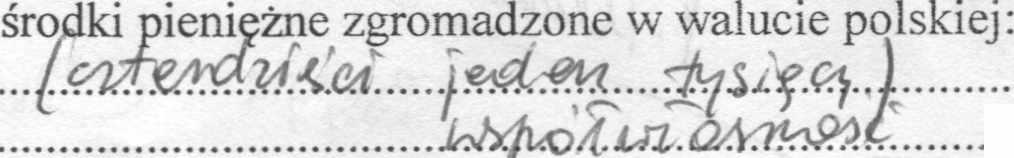 środki pieniężne zgromadzone w walucie polskiej:
(czterdzieści jeden tysięcy)
współwłasność